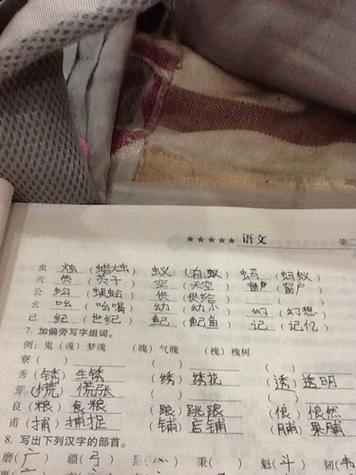 ★★★★★ 语文 第二
虫 烛 (蜡烛) 蚁 (蚂蚁) 蚂 (蚂蚁)
穴 (天空) 窗户 (窗户)
公 蚣 (蜈蚣) 供 (供给)
玄 吆 (吆喝) 幼 (幼小) 幻 (幻想)
已 纪 (世纪) 鱾 (鱾鱼) 记 (记忆)
7. 加偏旁写字组词。
例: 鬼 (魂) 梦魂 (魄) 气魄 (槐) 槐树
寮 (
秀 (锈) 生锈 (绣) 绣花 (透) 透明
荒 (慌) 慌张
良 (粮) 食粮 (踉) 跳踉 (悢) 悢然
甫 (捕) 捕捉 (铺) 店铺 (脯) 果脯
8. 写出下列汉字的部首。
磨( 广 ) 疆( 弓 ) 乘( 魁( 斗 ) 韧(